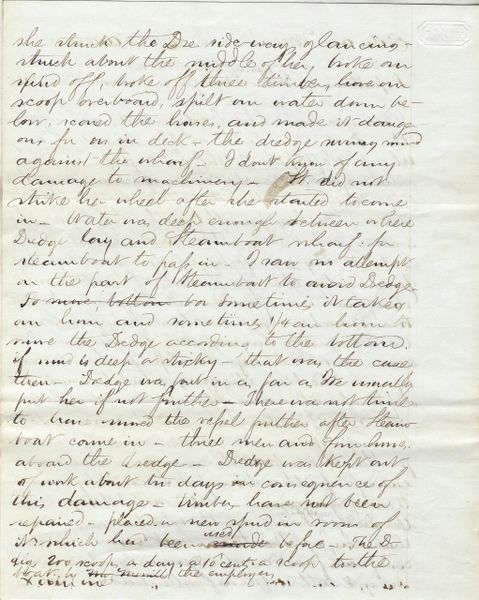 she struck the Dre side-ways glancing -
struck about the middle of her, broke our
spud off, broke off three timbers, hove our
scoop overboard, spilt our water down be-
low, scared the horses, and made it danger-
ous for us in deck - the dredge swung round
against the wharf - I dont know of any
damage to machinery - It did not
strike her wheel after she started to come
in - Water was deep enough between where
Dredge lay and Steamboat wharf for
steamboat to pass in - I saw no attempt
on the part of Steamboat to avoid Dredge
To move, bottom sometimes it takes
an hour and sometimes 1/4 an hour to
move the Dredge according to the bottom.
if mud is deep or sticky - that was the case
then - Dredge was put in as far as we usually
put her if not further - There was not time
to have moved the vessel further after Steam
boat came in - three men and four horses
aboard the dredge - Dredge was kept out
of work about ten days in consequence of
this damage - timbers have not been
repaired - placed a new spud in room of
which had been used before - The D
dig 200 scoops a day, a 16 cents a scoop to the
by Mr Merrill the employer